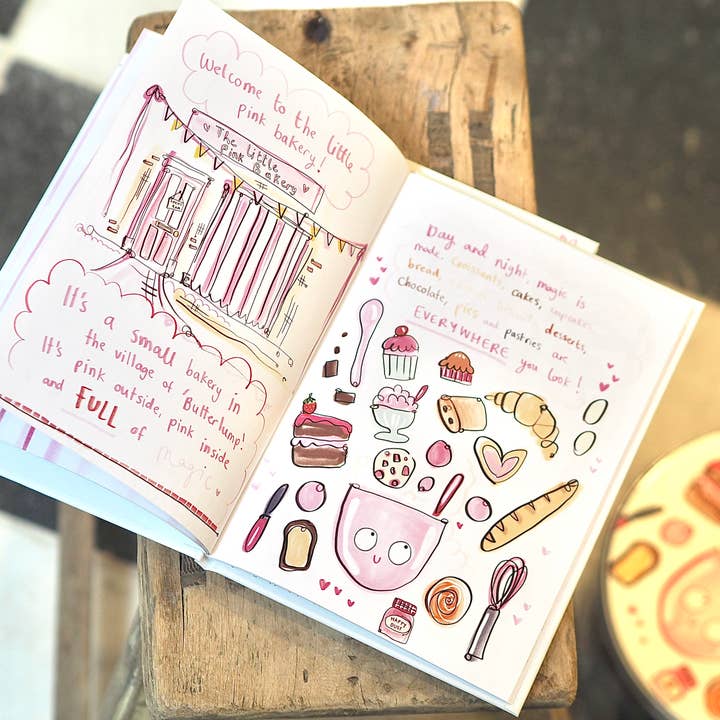 Welcome to the little
pink bakery!
The little
Pink Bakery
It's a small bakery in
the village of Butterlump.
It's pink outside, pink inside
and FULL of magic
Day and night, magic is
made. Croissants, cakes, cupcakes,
bread, desserts,
Chocolate, pies and pastries are
EVERYWHERE you look!
HAPPY
DUST